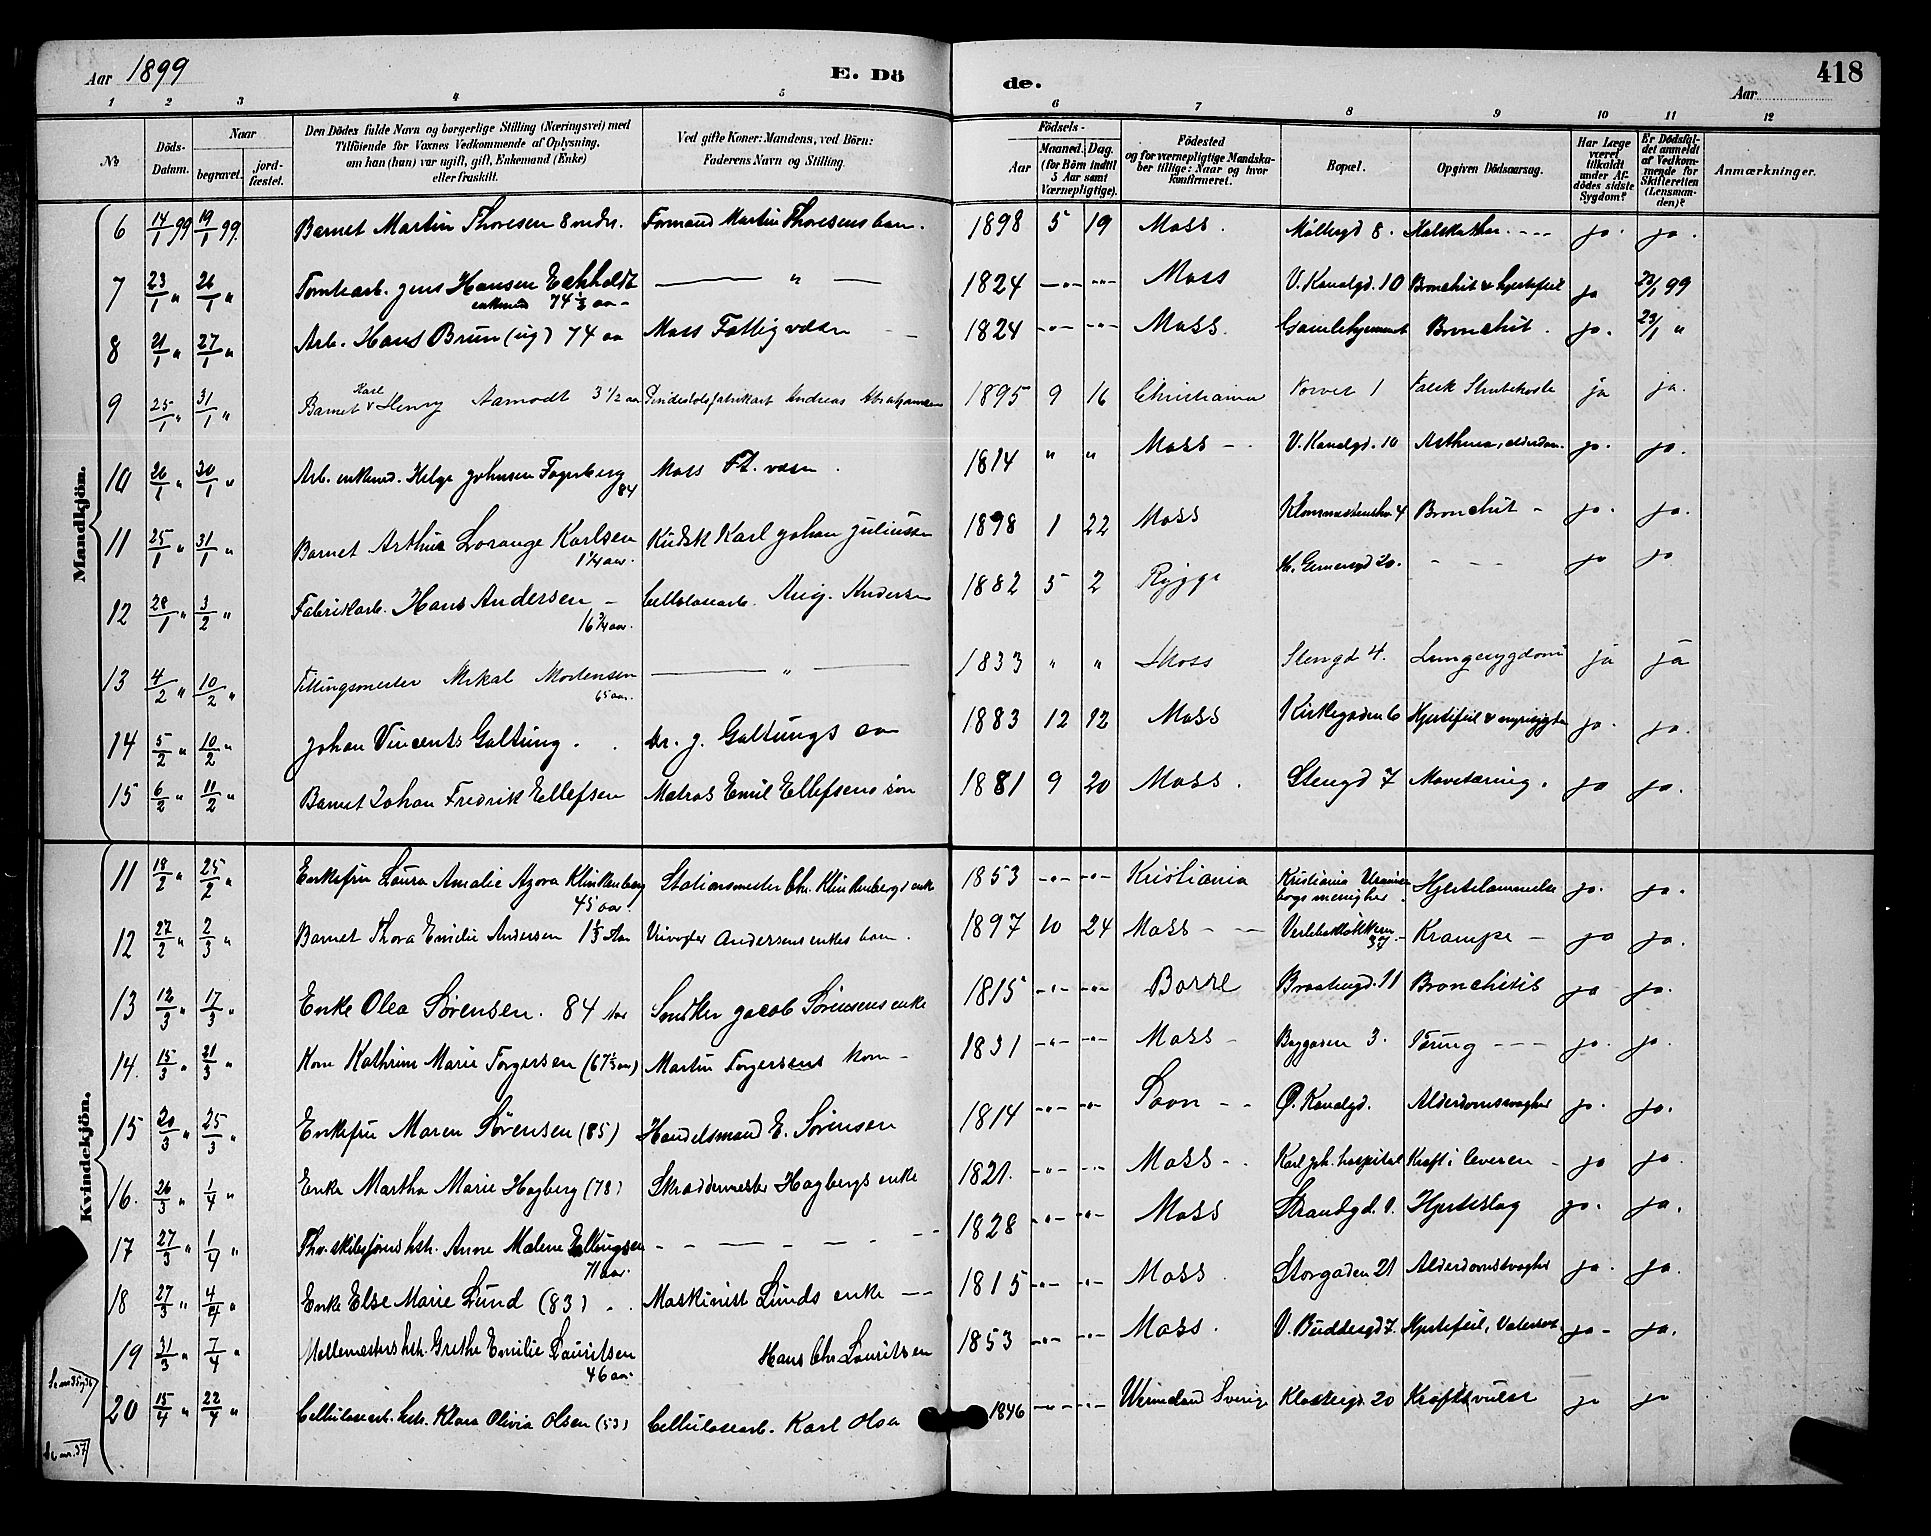 Aar 1899
E. Dö
de.
Aar
418
1 2 3 4 5 6 7 8 9 10 11 12
№
Döds-Datum.
Naar begravet. jordfæstet.
Den Dödes fulde Navn og borgerlige Stilling (Næringsvei) med Tilföiende for Voxnes Vedkommende af Oplysning, om han (hun) var ugift, gift, Enkemand (Enke) eller fraskilt.
Ved gifte Koner: Mandens, ved Börn: Faderens Navn og Stilling.
Födsels- Aar Maaned. Dag. (for Börn indtil 5 Aar samt Værnepligtige).
Födested og for værnepligtige Mandskaber tillige: Naar og hvor konfirmeret.
Bopæl.
Opgiven Dödsaarsag.
Har Læge været tilkaldt under Afdödes sidste Sygdom?
Er Dødsfaldet anmeldt af Vedkommende for Skifteretten (Lensmanden)?
Anmærkninger.
Mandkjön.
6 14/1 99 19/1 99. Barnet Martin Thoresen 8 mdr. Formand Martin Thoresens barn. 1898 5 19 Moss. Møllergd 8. ja. ja.
7 23/1 " 26/1 " Tomtearb. Jens Hansen Eckholdt enkemd 74 1/3 aa — " — 1824 -"- -"- Moss V. Kanalgd. 10 Bronchit & hjertefeil ja 23/1 99
8 21/1 " 27/1 " Arb. Hans Brun (ug) 74 aa Moss Fattigvæsen 1824 -"- -"- Moss. Gamlehjemmet Bronchit. ja. 23/1 "
9 25/1 " 31/1 " Barnet Karl Henry Aamodt 3 1/2 aa Andreas Abrahamsen 1895 9 16 Christiania Torvet 1 Falsk Strubehoste ja ja.
10 26/1 " 30/1 " Arb. enkemd. Helge Johnsen Fagerberg 84 Moss Ft. væsen. 1814 " " Moss - V. Kanalgd. 10 Asthma, alderdom. ja. ja.
11 25/1 " 31/1 " Barnet Arthur Lorange Karlsen 1 1/4 aar. Kudsk Karl Johan Juliussen 1898 1 22 Moss 4 Bronchit - ja. ja.
12 28/1 " 3/2 " Fabrikarb. Hans Andersen - 16 3/4 aar. Cellulosearb. Aug. Andersen 1882 5 2 Rygge 20. - - - ja ja
13 4/2 " 10/2 " Mikal Mortensen 65 aar. — " — 1833 " " Moss Stengd 4. Lungesygdom ja ja
14 5/2 " 10/2 " Johan Vincents Galtung. Dr. J. Galtungs søn 1883 12 12 Moss Kirkegaden 6 Hjertefeil & nyresygdom ja. ja.
15 6/2 " 11/2 " Barnet Johan Fredrik Ellefsen Matros Emil Ellefsens søn 1881 9 20 Moss. Stengd 7 Mavetæring. ja ja.
Kvindekjön.
11 18/2 " 25/2 " Enkefru Laura Amalie Azora Klinkenberg 45 aar. Stationsmester Chr. Klinkenbergs enke 1853 -"- -"- Kristiania Kristiania Uranienborgs menighet. Hjertelammelse ja. ja.
12 27/2 " 2/3 " Barnet Thora Emilie Andersen 1 1/3 Aar Andersens enkes barn. 1897 10 24 Moss - - Verlebakløkken 37. Krampe - ja ja.
13 12/3 " 17/3 " Enke Olea Sørensen. 84 Aar Snedker Jacob Sørensens enke 1815 -"- -"- Borre Braatengd. 11 Bronchitis ja ja.
14. 15/3 " 21/3 " Kone Kathrine Marie Torgersen (67 1/3 aar) Martin Torgersens kone - 1831 -"- -"- Moss - Baggaden 3. Tæring - - - ja. ja.
15 20/3 " 25/3 " Enkefru Maren Sørensen (85) Handelsmand E. Sørensen 1814 -"- -"- Soon - - Ø. Kanalgd. Alderdomssvaghed ja. ja.
16. 26/3 " 1/4 " Enke Martha Marie Hagberg (78) Skræddermester Hagbergs enke 1821. -"- -"- Moss - Karl Joh. hospital Kræft i leveren - ja ja.
17 27/3 " 1/4 " Fhv. skibsførers hstr. Anne Malene Ellingsen 71 aar. - - - - - - 1828 -"- -"- Moss Strandgd. 1. Hjerteslag ja. ja.
18 27/3 " 4/4 " Enke Else Marie Lund (83) Maskinist Lunds enke - - 1815 -"- -"- Moss. Storgaden 21 Alderdomssvaghed ja. ja.
19 31/3 " 7/4 " Møllemesters hstr. Grethe Emilie Lauritsen 46 aar. Hans Chr. Lauritsen 1853 -"- -"- Moss. V. Buddesgd 7. Hjertefeil, Vatersot ja - ja.
20 15/4 " 22/4 " Cellulosearb. hstr. Klara Olivia Olsen (53) Cellulosearb. Karl Olsen 1846 -"- -"- Wermland Sverige Klostergd. 20 Kræftsvulst ja ja